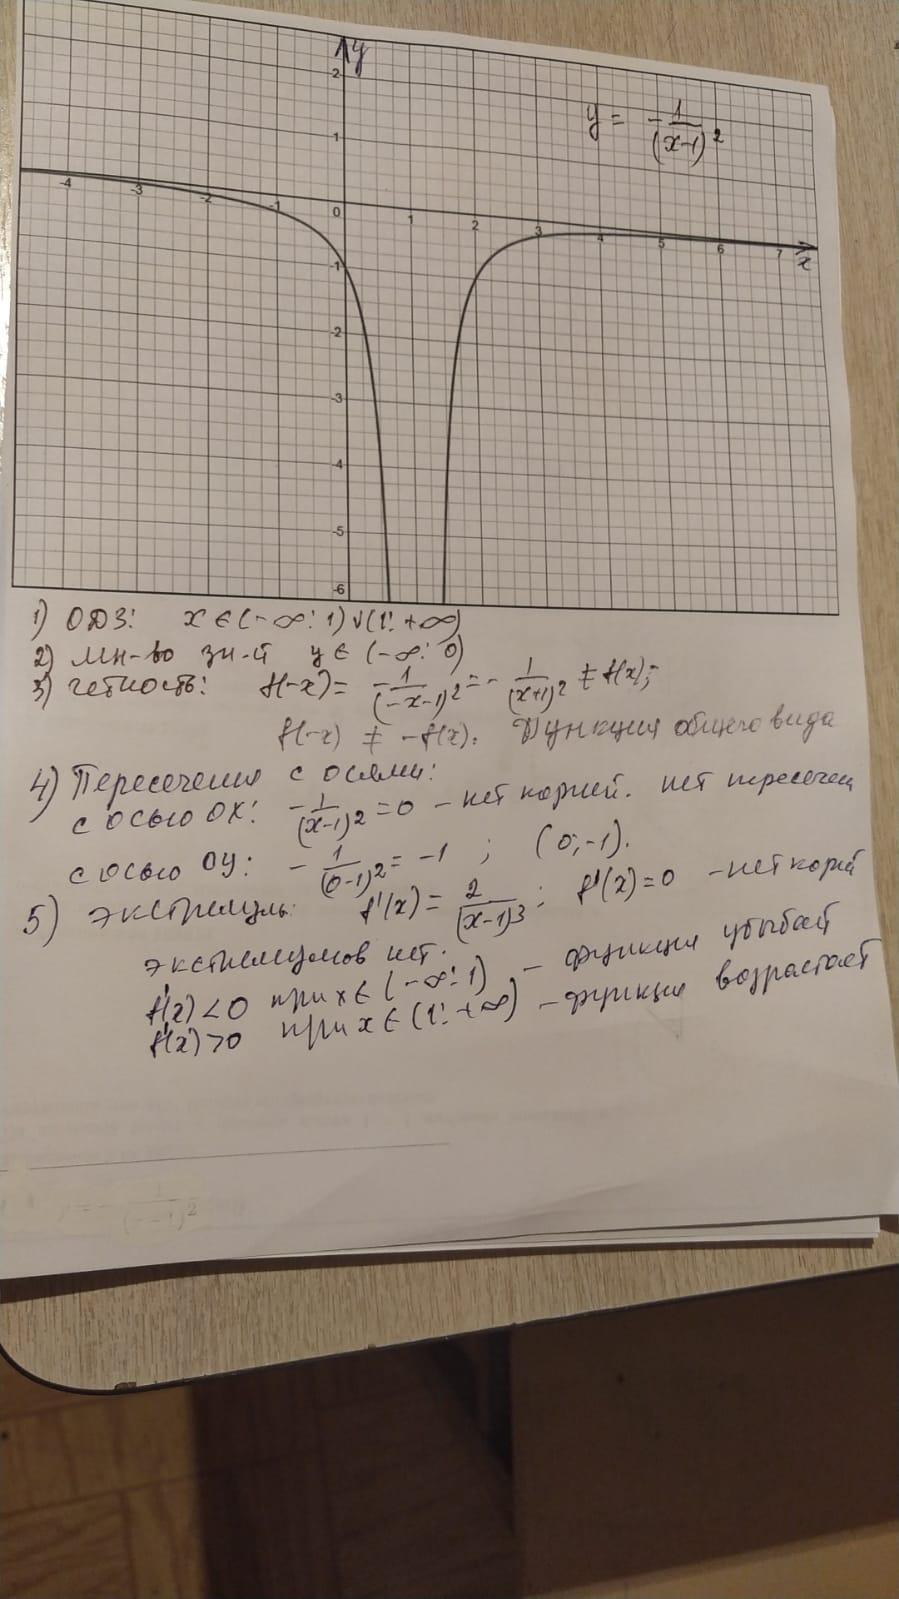 y
2
1
y = -1/(x-1)²
-4 -3 -2 -1 0 1 2 3 4 5 6 7
x
-1
-2
-3
-4
-5
-6
1) ОДЗ: x∈(-∞; 1)∨(1; +∞)
2) Мн-во зн-й y∈ (-∞; 0)
3) Четность: f(-x) = -1/(-x-1)² = -1/(x+1)² ≠ f(x);
f(-x) ≠ -f(x). Функция общего вида
4) Пересечения с осями:
с осью OX: -1/(x-1)² = 0 - нет корней. нет пересечен
с осью OY: -1/(0-1)² = -1 ; (0;-1).
5) Экстремумы: f'(x) = 2/(x-1)³ ; f'(x)=0 - нет корней
экстремумов нет.
f'(x)<0 при x∈(-∞; 1) - функция убывает
f'(x)>0 при x∈(1; +∞) - функция возрастает